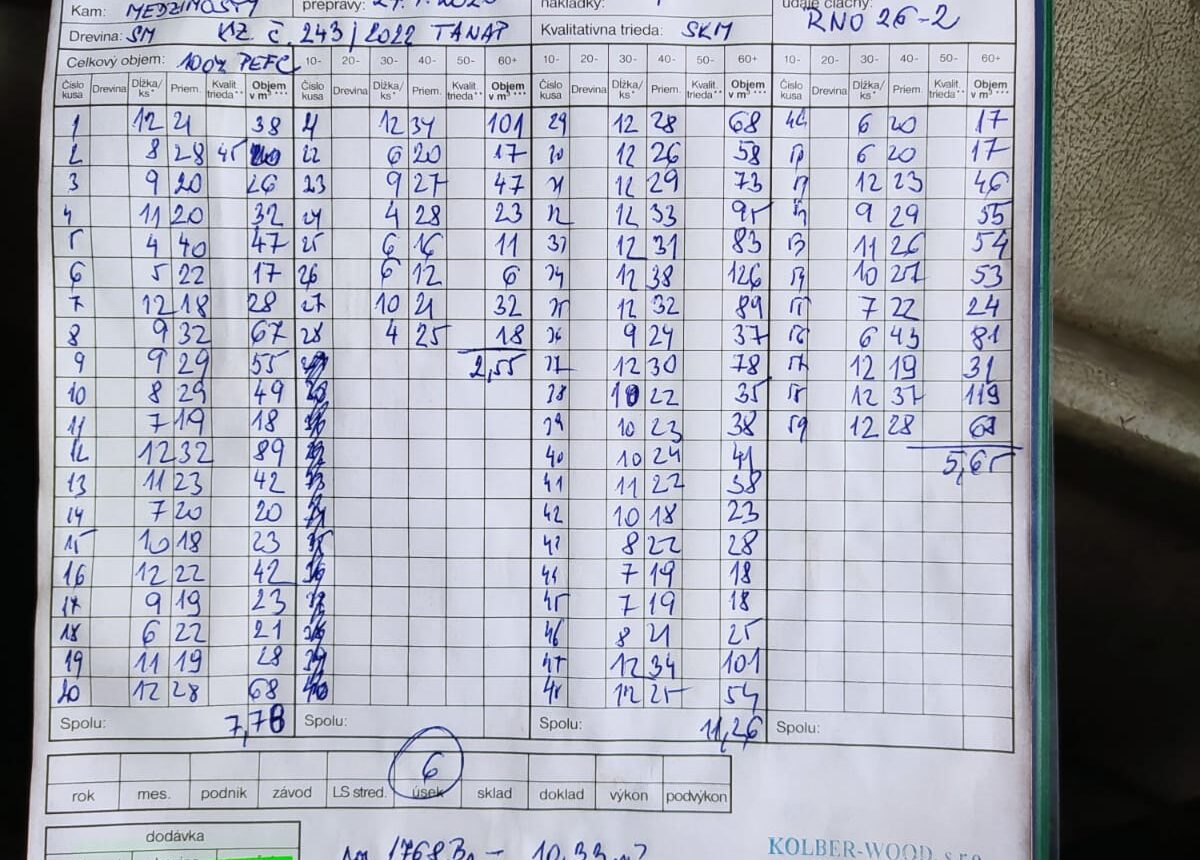 Kam: MEDZIMOSTY prepravy: nakládky: údaje číachy:
Drevina: SM KZ č. 243/2022 TANAP Kvalitatívna trieda: SKM RNO 26-2
Celkový objem: 100% PEFC 10- 20- 30- 40- 50- 60+ 10- 20- 30- 40- 50- 60+ 10- 20- 30- 40- 50- 60+
Číslo kusa Drevina Dĺžka/ks* Priem. Kvalit. trieda** Objem v m³*** Číslo kusa Drevina Dĺžka/ks* Priem. Kvalit. trieda** Objem v m³*** Číslo kusa Drevina Dĺžka/ks* Priem. Kvalit. trieda** Objem v m³*** Číslo kusa Drevina Dĺžka/ks* Priem. Kvalit. trieda** Objem v m³***
1 12 21 38 12 34 101 29 12 28 68 6 20 17
2 8 28 45 22 6 20 17 30 12 26 58 6 20 17
3 9 20 26 23 9 27 47 31 12 29 73 12 23 46
4 11 20 32 24 4 28 23 32 12 33 95 9 29 55
5 4 40 47 25 6 16 11 33 12 31 83 53 11 26 54
6 5 22 17 26 6 12 6 34 12 38 126 10 27 53
7 12 18 28 27 10 21 32 35 12 32 89 55 7 22 24
8 9 32 67 28 4 25 18 36 9 24 37 56 6 43 81
9 9 29 55 2,55 37 12 30 78 57 12 19 31
10 8 29 49 38 10 22 35 58 12 37 119
11 7 19 18 39 10 23 38 59 12 28 68
12 12 32 89 40 10 24 41 5,65
13 11 23 42 41 11 22 38
14 7 20 20 42 10 18 23
15 10 18 23 43 8 22 28
16 12 22 42 44 7 19 18
17 9 19 23 45 7 19 18
18 6 22 21 46 8 21 25
19 11 19 28 47 12 34 101
20 12 28 68 48 12 25 54
Spolu: 7,78 Spolu: Spolu: 11,26 Spolu:
6
rok mes. podnik závod LS stred. úsek sklad doklad výkon podvýkon
dodávka
1768 10,33
KOLBER-WOOD s.r.o.